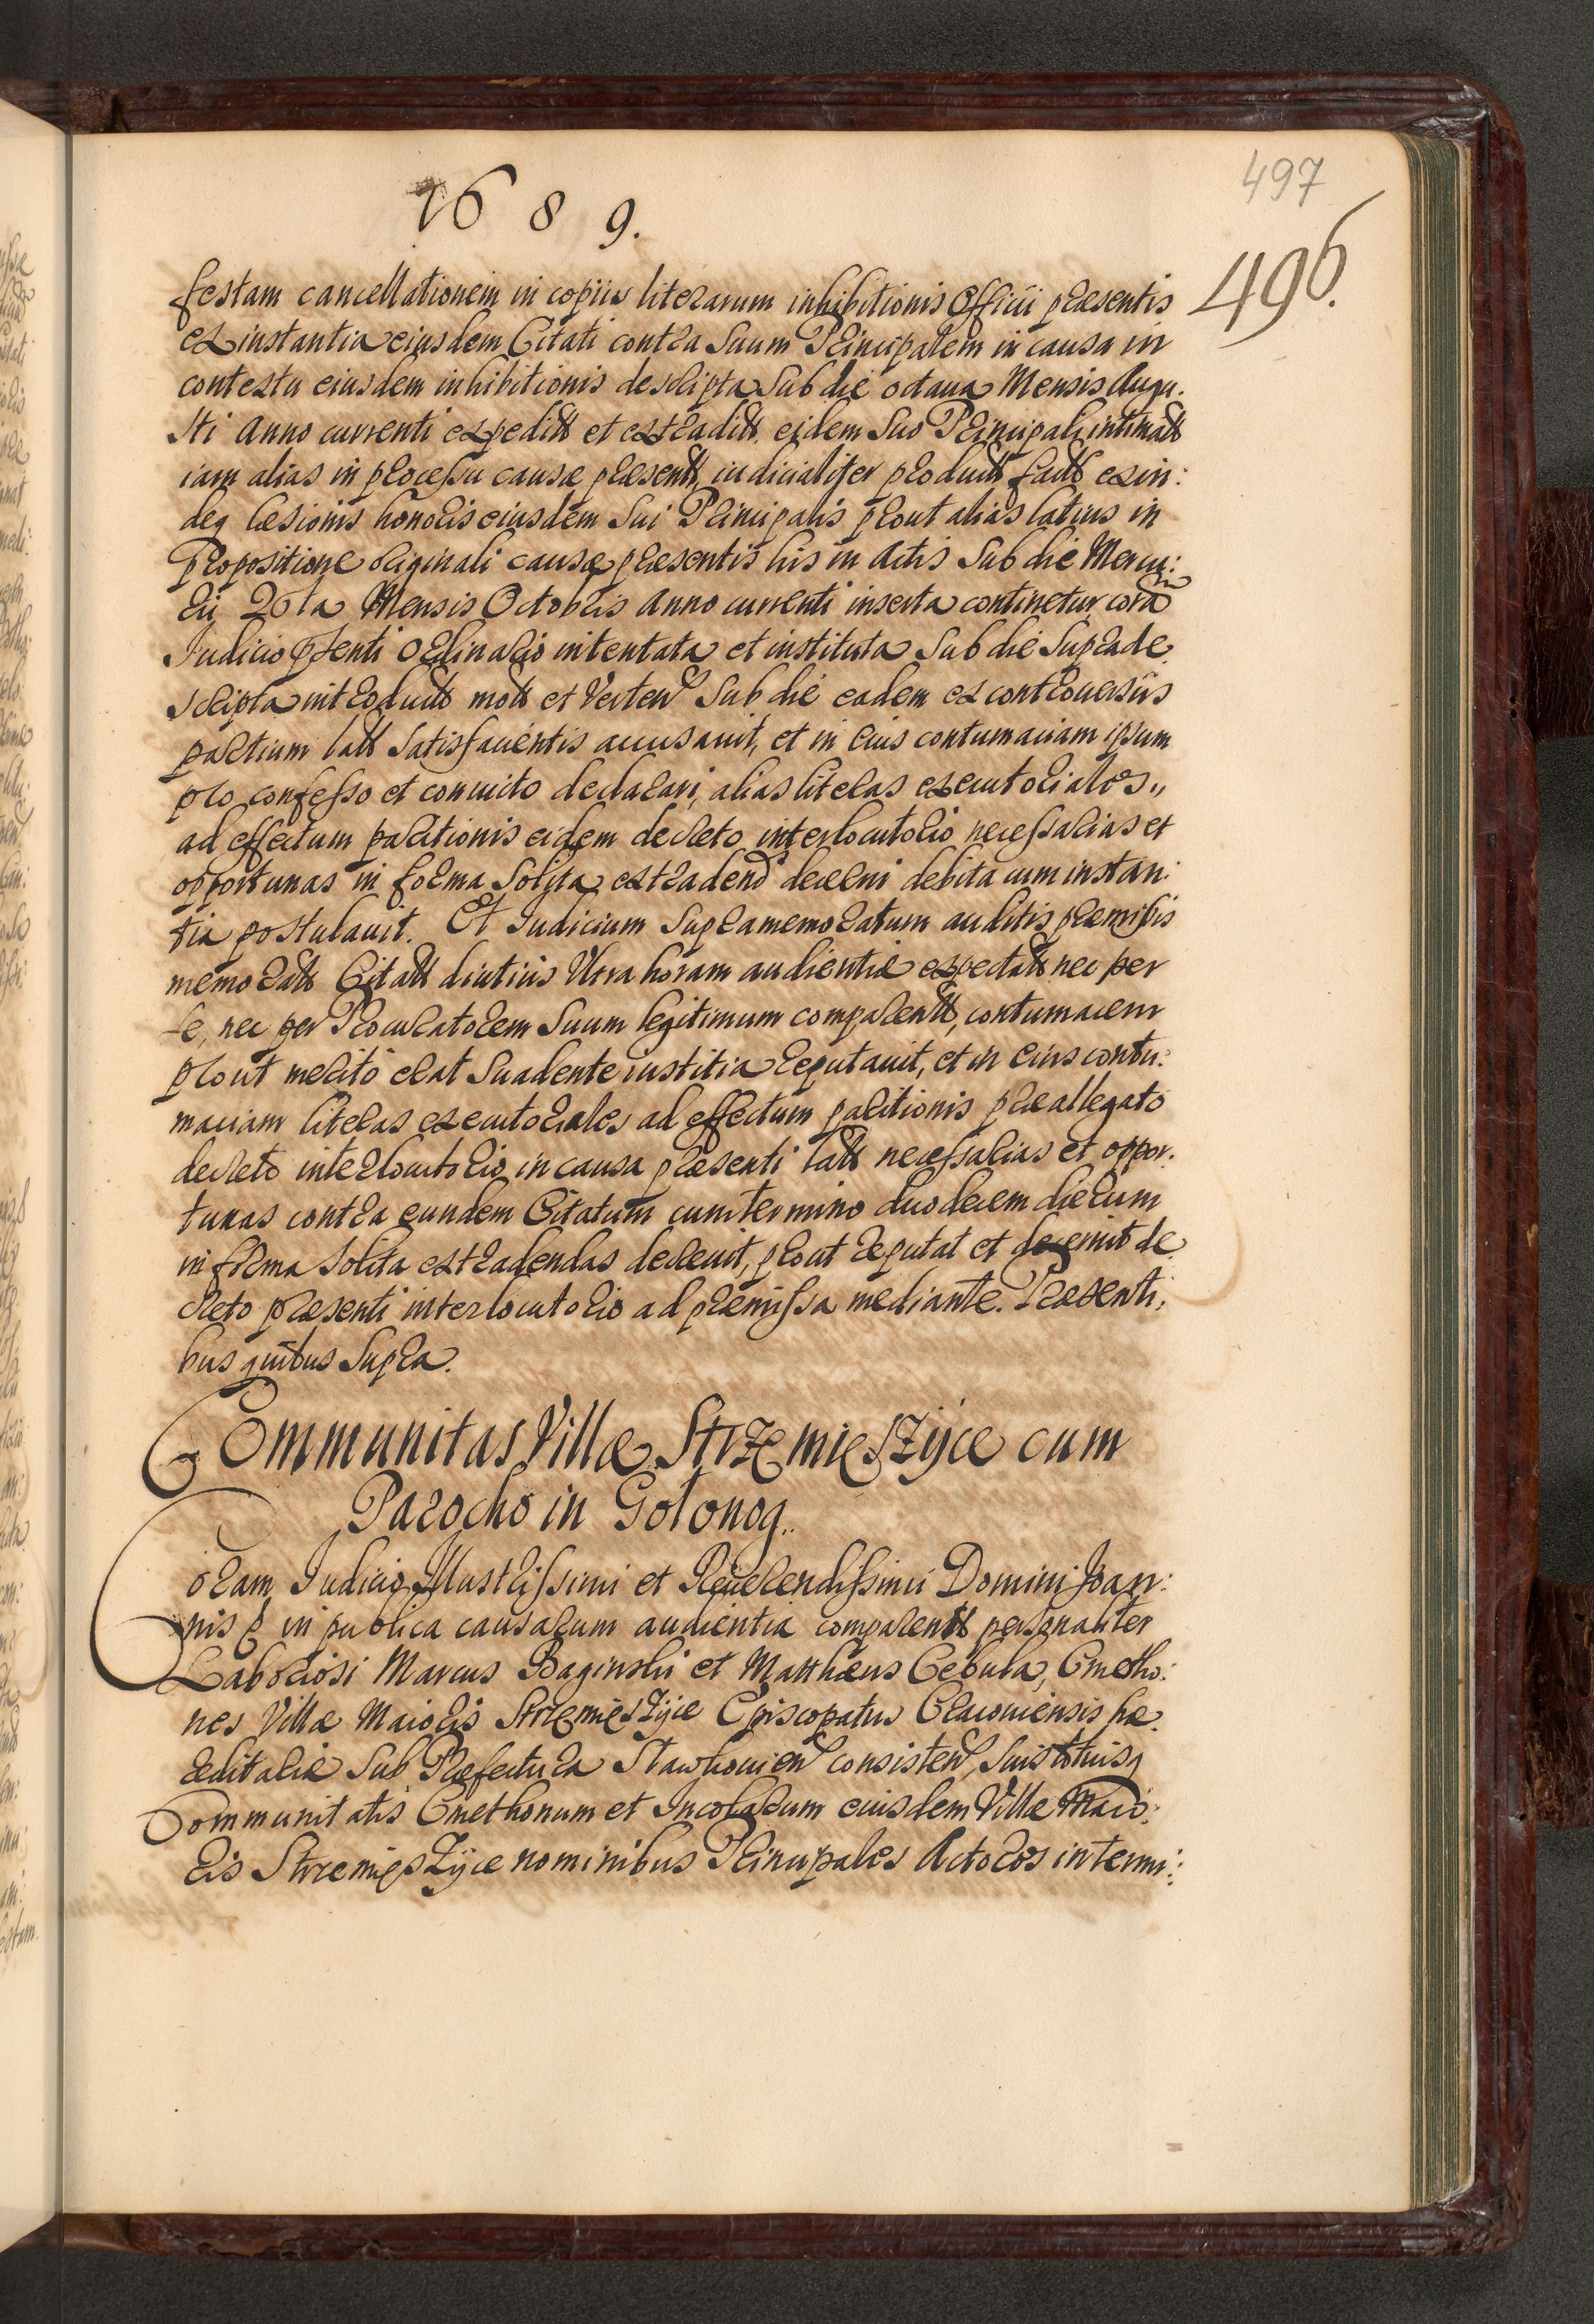 497
1689.
496.
festam cancellationem in copiis literarum inhibitionis Officii præsentis
ex instantia eiusdem Citati contra Suum Principalem in causa in
contextu eiusdem inhibitionis descripta Sub die octaua Mensis Augu:
sti Anno currenti expedit et extradit eidem Suo Principali intimat
iam alias in processu causæ præsent iudicialiter product fact exin:
deq læsionis honoris eiusdem Sui Principalis prout alias latius in
Propositione originali causæ præsentis his in Actis Sub die Mercu:
rii 26ta Mensis Octobris Anno currenti inserta continetur corã
Iudicio pſenti Ordinario intentata et instituta Sub die Suprade
scripta introduct mot et Verten Sub die eadem ex controuersiis
partium lat Satisfacientis accusauit, et in Eius contumaciam ipsum
pro confesso et conuicto declarari, alias literas executoriales,,
ad effectum paritionis eidem decreto interlocutorio necessarias et
opportunas in forma Solita extradend decerni debita cum instan:
tia postulauit. Et Iudicium Supramemoratum auditis præmissis
memorat Citat diutius Vltra horam audientiæ expectat nec per
se, nec per Procuratorem Suum legitimum comparent, contumacem
prout merito erat Suadente iustitia reputauit, et in Eius contu:
maciam literas executoriales ad effectum paritionis præallegato
decreto interlocutorio in causa præsenti lat necessarias et oppor:
tunas contra eundem Citatum cum termino duodecem dierum
in forma Solita extradendas decreuit, prout reputat et decernit de
creto præsenti interlocutorio ad præmissa mediante. Præsenti,
bus quibus Supra.
Communitas Villæ Strzemięszÿce cum
Parocho in Gołonog..
Coram Iudicio Illustrissimi et Reuerendissimi Domini Joan:
nis in publica causarum audientia comparent personaliter
Laboriosi Marcus Baginski et Matthæus Cebula, Cmetho:
nes Villæ Maioris Strzemięszÿce Episcopatus Cracouiensis hæ
reditariæ Sub Præfectura Slawkouien consisten, Suis totiusq
Communitatis Cmethonum et Incolarum eiusdem Villæ Maio:
ris Strzemięszÿce nominibus Principales Actores in termi: